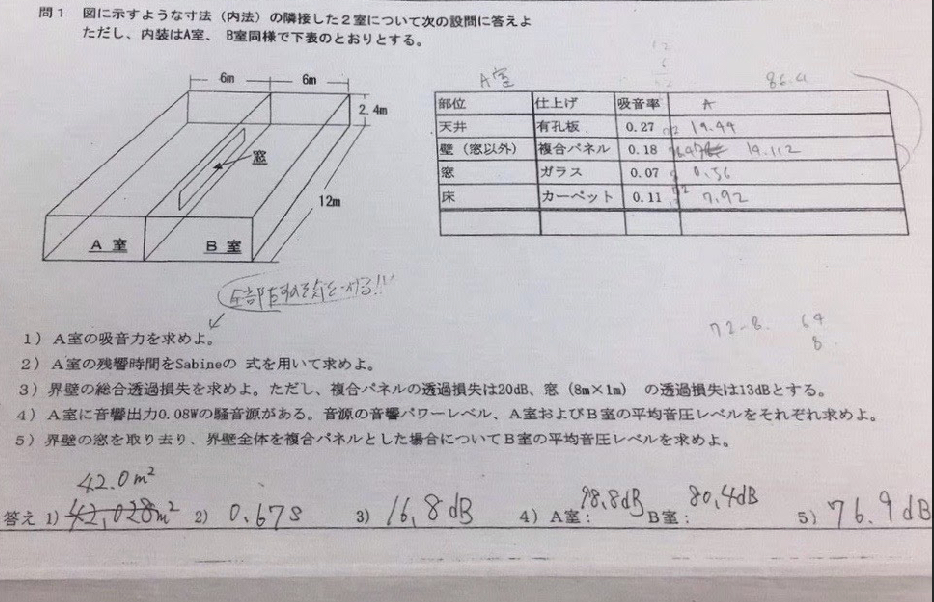 問1 図に示すような寸法（内法）の隣接した2室について次の設問に答えよ
ただし、内装はA室、B室同様で下表のとおりとする。
6m 6m
2.4m
窓
12m
A 室 B 室
A室 86.4
部位 仕上げ 吸音率 A
天井 有孔板 0.27 72 19.44
壁（窓以外） 複合パネル 0.18 19.112
窓 ガラス 0.07 8 0.56
床 カーペット 0.11 72 7.92
72-8. 64
8
1）A室の吸音力を求めよ。
2）A室の残響時間をSabineの 式を用いて求めよ。
3）界壁の総合透過損失を求めよ。ただし、複合パネルの透過損失は20dB、窓（8m×1m） の透過損失は13dBとする。
4）A室に音響出力0.08Wの騒音源がある。音源の音響パワーレベル、A室およびB室の平均音圧レベルをそれぞれ求めよ。
5）界壁の窓を取り去り、界壁全体を複合パネルとした場合についてB室の平均音圧レベルを求めよ。
42.0m²
答え 1) 42,028m² 2) 0.67s 3) 16,8dB 4) A室: 98,8dB B室: 80,4dB 5) 76.9dB